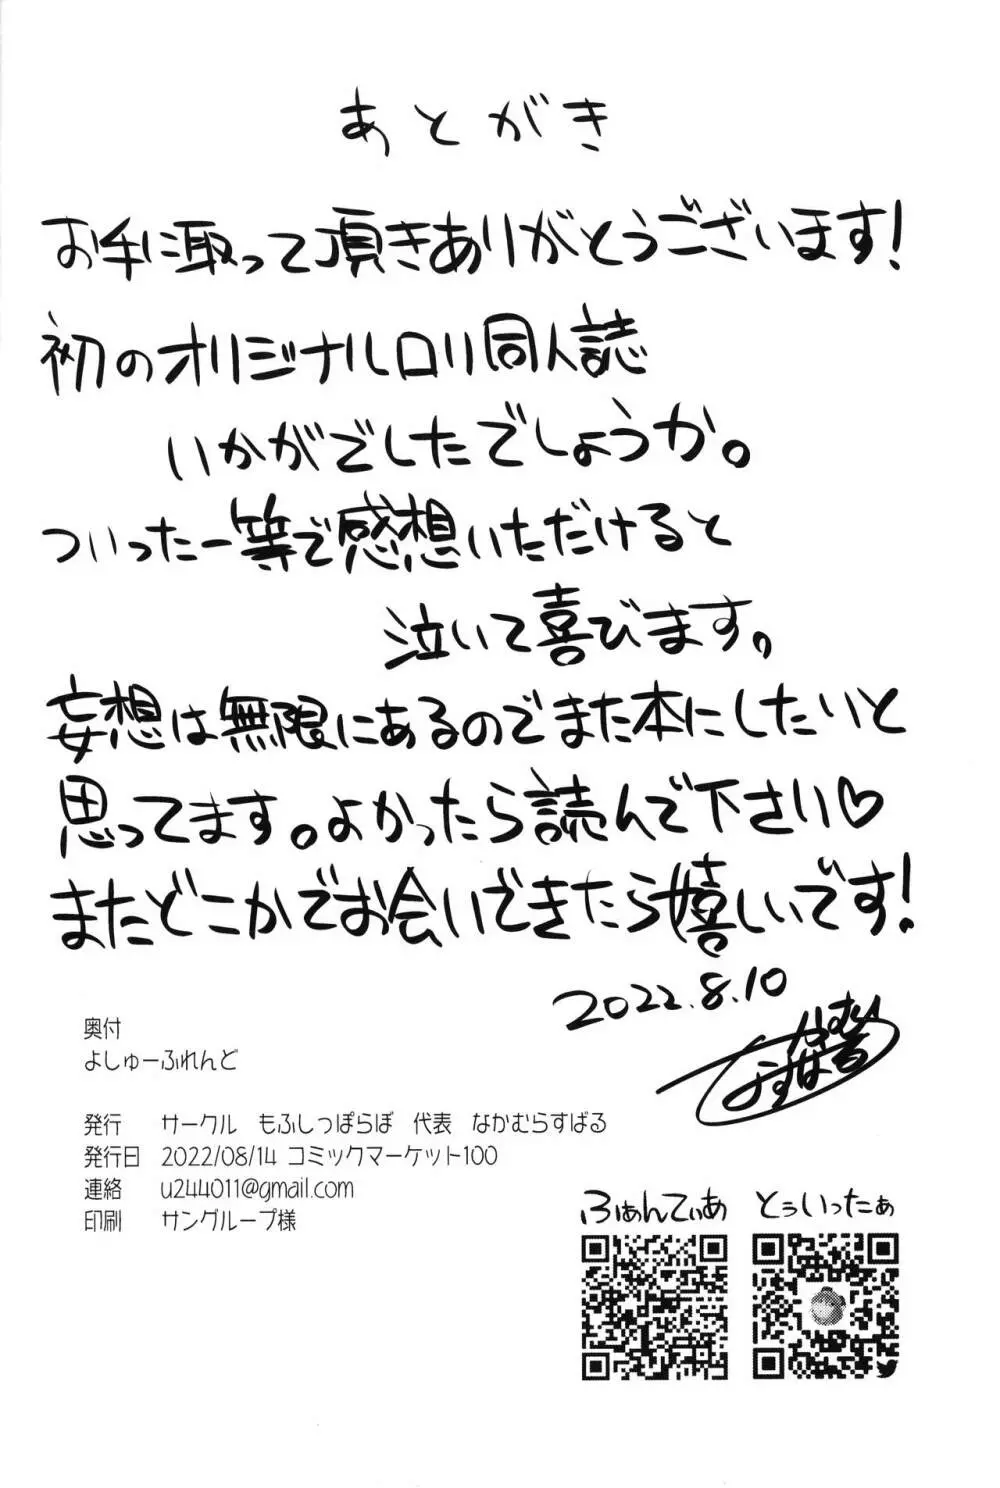 あとがき
お手に取って頂きありがとうございます!
初のオリジナルロリ同人誌
いかがでしたでしょうか。
ついったー等で感想いただけると
泣いて喜びます。
妄想は無限にあるのでまた本にしたいと
思ってます。よかったら読んで下さい♡
またどこかでお会いできたら嬉しいです!
2022.8.10
奥付
よしゅーふれんど
発行 サークル もふしっぽらぼ 代表 なかむらすばる
発行日 2022/08/14 コミックマーケット100
連絡 u244011@gmail.com
印刷 サングループ様
ふぁんてぃあ
とぅいったぁ